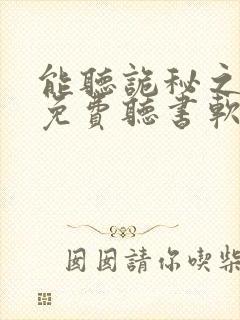 能聽詭秘之
免費聽書軟
囡囡請你喫柴